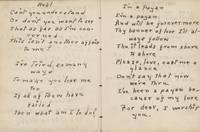 Hub!
Can't understand
Or don't you want to see
That as far as I'm con-
cerned
This isn't another affair
to me?
I've tried, so many
ways
To make you love me
too
If all of them have
failed
Then what am I to do?
I'm a Pagan
I'm a pagan
And will be forever more
Thy banner of love I'll al-
ways follow
Tho it leads from shore
to shore
Please, love, cast me a
glance
Don't say that now
we're thru
I've been a pagan be-
cause of my love
For, dear, I worship
you.